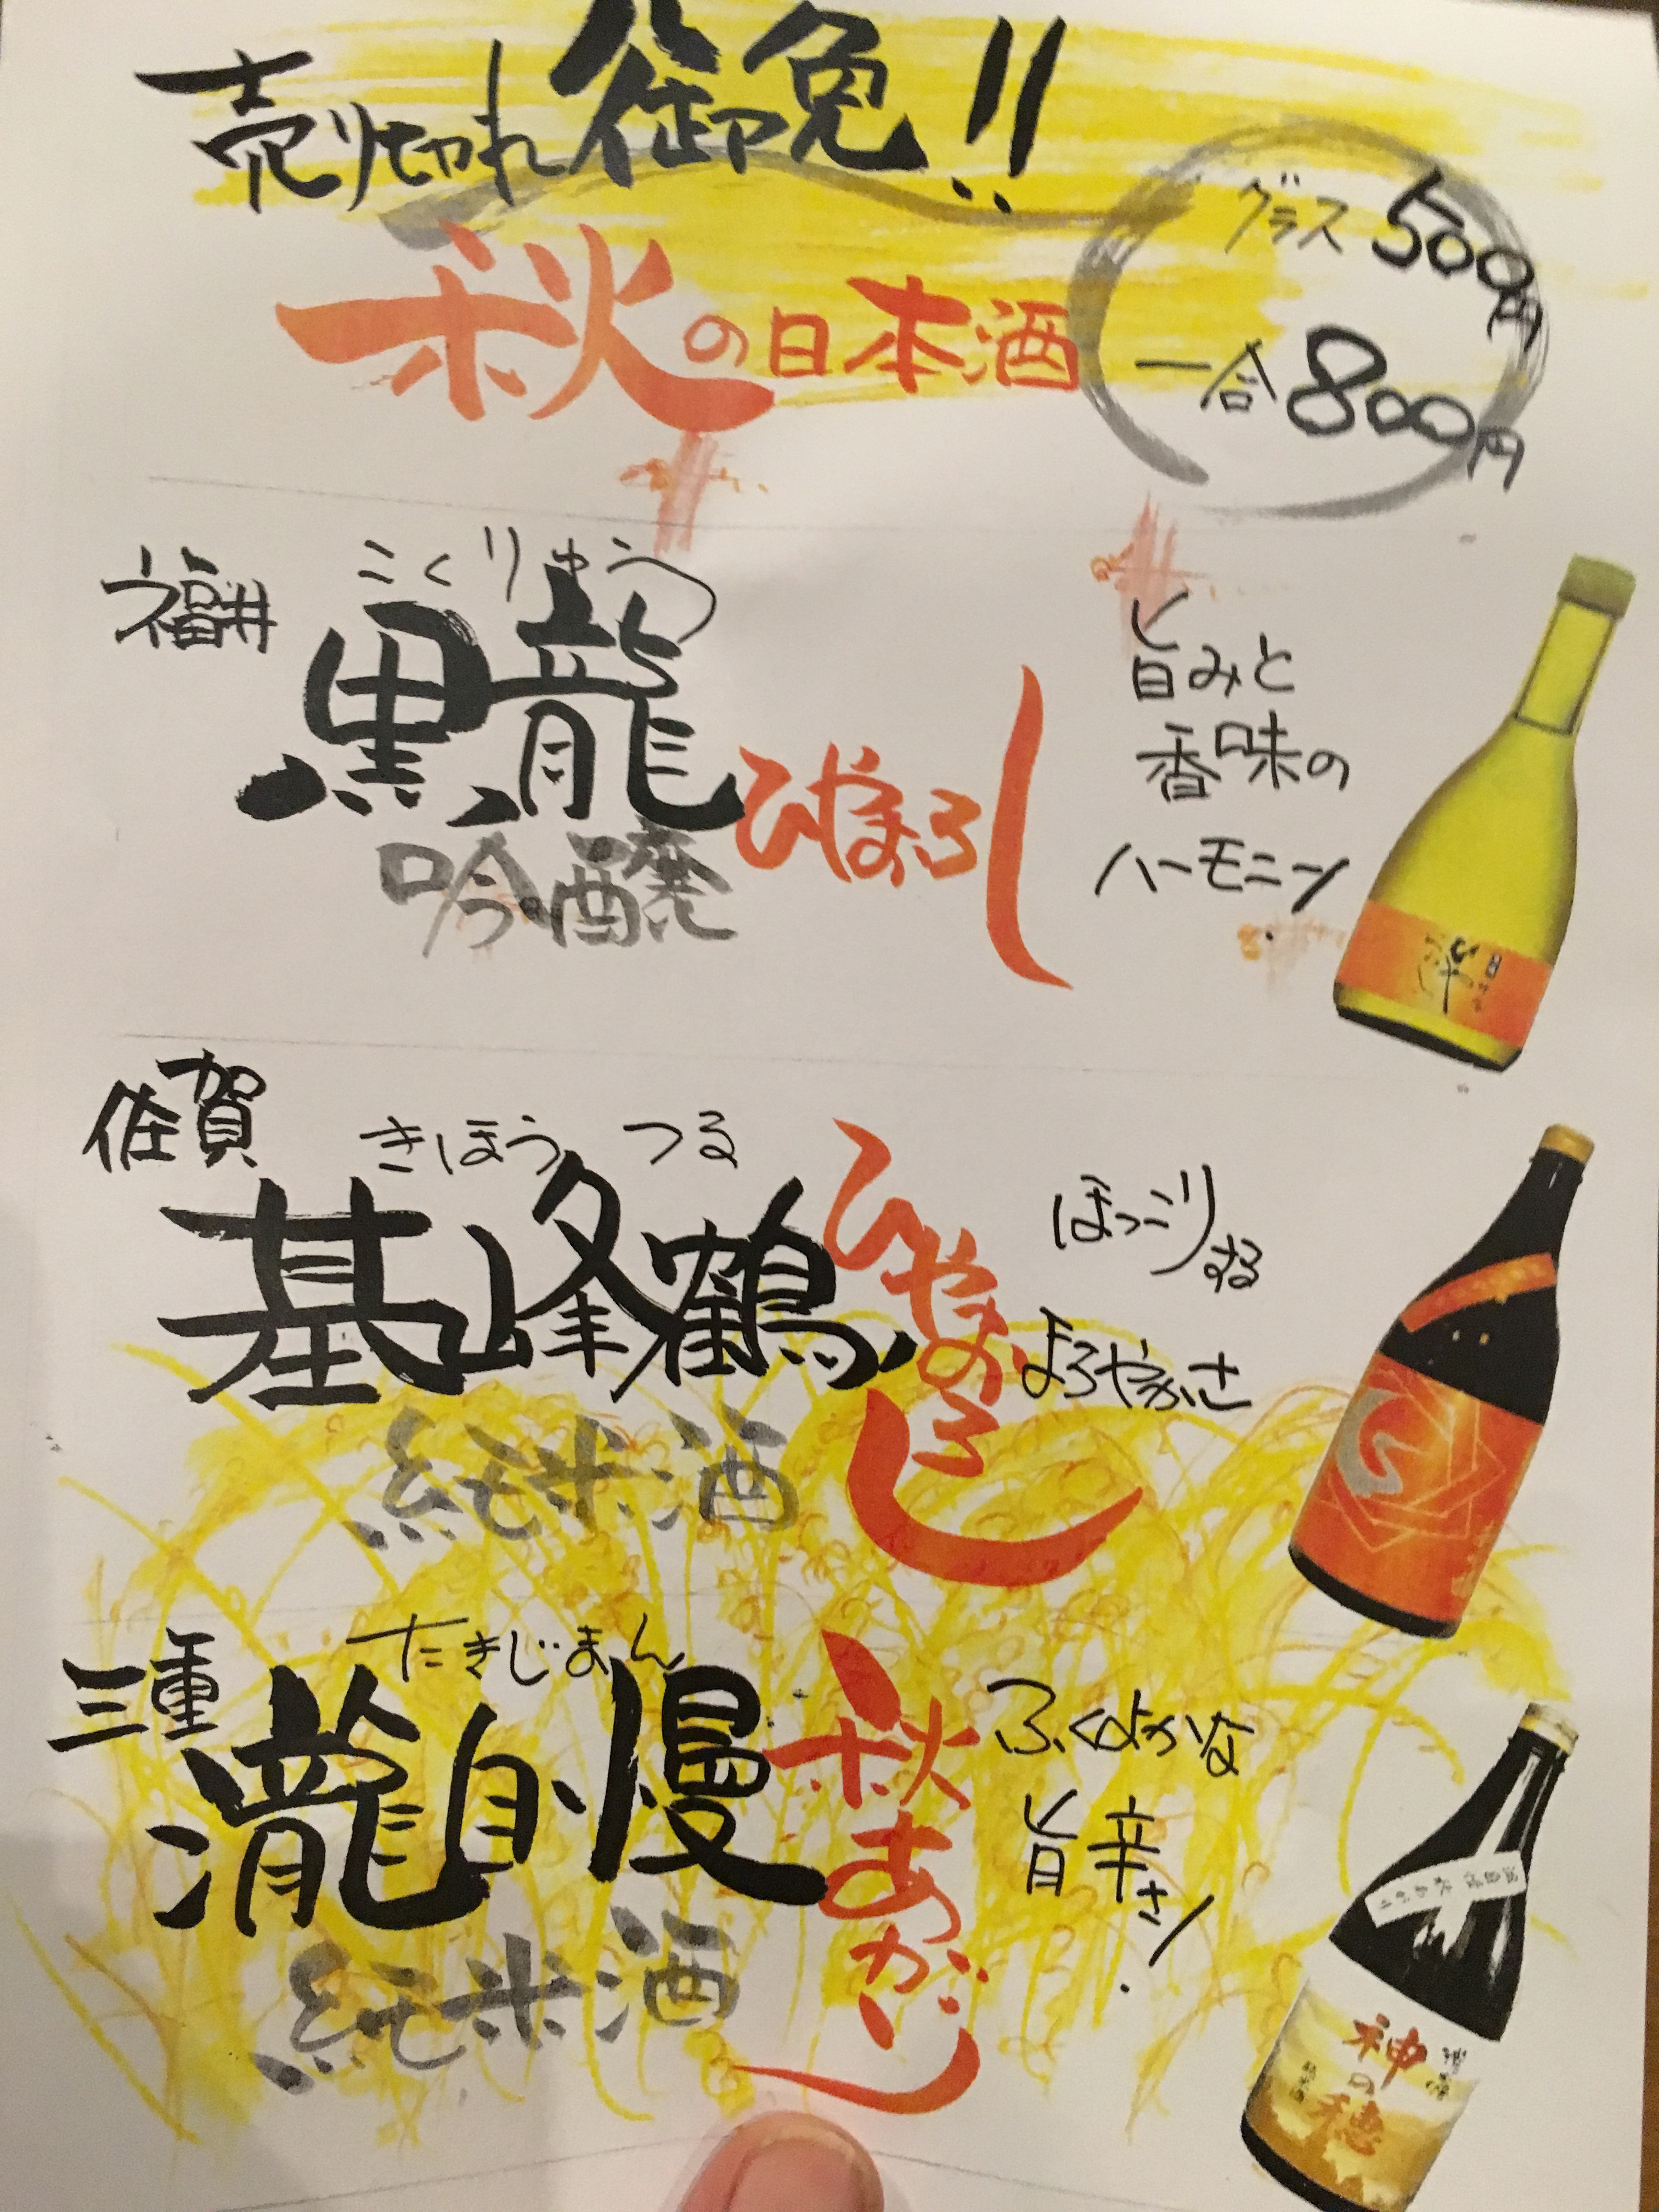 売り切れ御免!!
秋の日本酒
グラス 500円
一合 800円
福井
こくりゅう
黒龍
吟醸
ひやおろし
旨みと
香味の
ハーモニー
佐賀
きほう つる
基峰鶴
純米酒
ひやおろし
ほっこりする
まろやかさ
三重
たきじまん
瀧自慢
純米酒
秋あがり
ふくよかな
旨辛さ!
神の穂